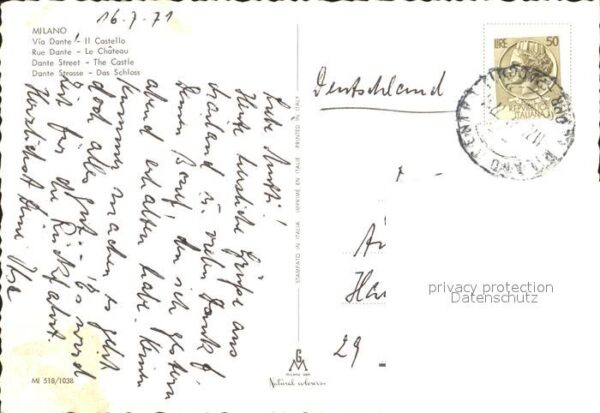 16.7.71
MILANO
Via Dante - Il Castello
Rue Dante - Le Château
Dante Street - The Castle
Dante Strasse - Das Schloss
Liebe Mutti!
Heute herzliche Grüße aus
Mailand u. vielen Dank f.
Deinen Brief, den ich gestern
abend erhalten habe. Keinen
Kummer machen, es geht
doch alles gut! - Es wird
Zeit für die Rückfahrt.
Herzlichst Deine
STAMPATO IN ITALIA - IMPRIME EN ITALIE - PRINTED IN ITALY
GM
Natural colours
MI 518/1038
Deutschland
LIRE 50
ITALIANA
MILANO
29
privacy protection
Datenschutz